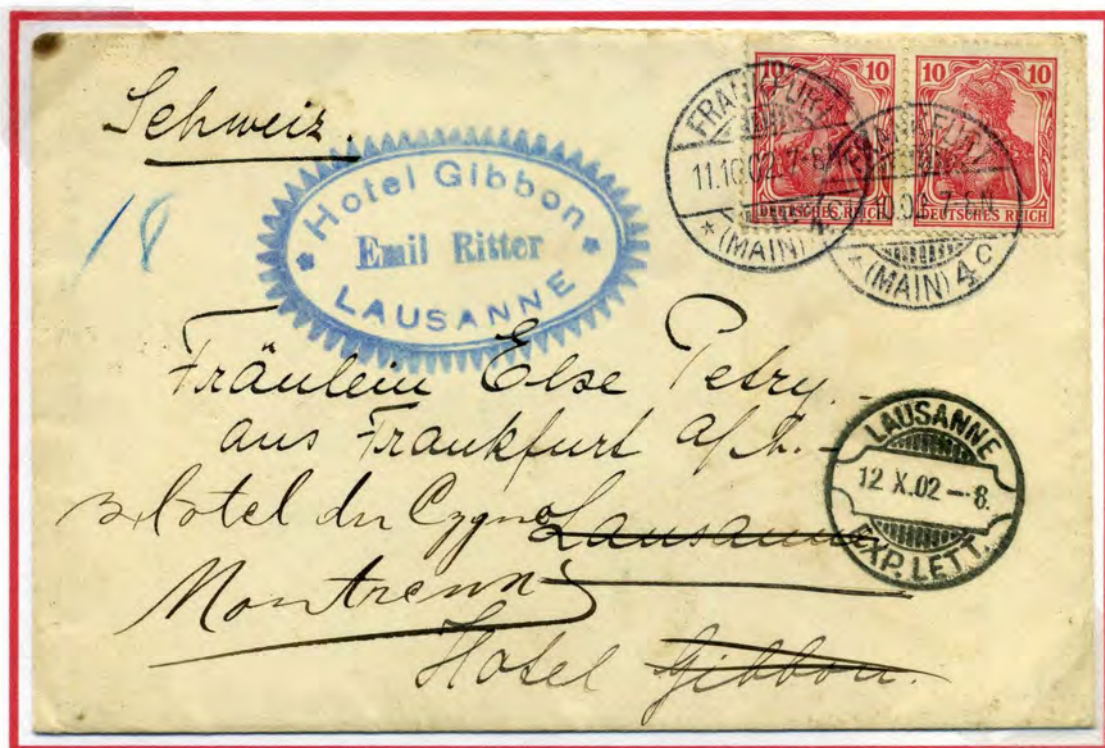 Schweiz.
18
Hotel Gibbon
Emil Ritter
LAUSANNE
10 10
DEUTSCHES REICH
10 10
DEUTSCHES REICH
FRANKFURT
11.10.02. 7-8 N.
* (MAIN)
FRANKFURT
10.02. 7-8 N.
* (MAIN) 4 c
Fräulein Else Petry.
aus Frankfurt a/M.
Hotel du Cygne Lausanne
Montreux
Hotel Gibbon.
LAUSANNE
12 X.02 – 8.
EXP. LETT.